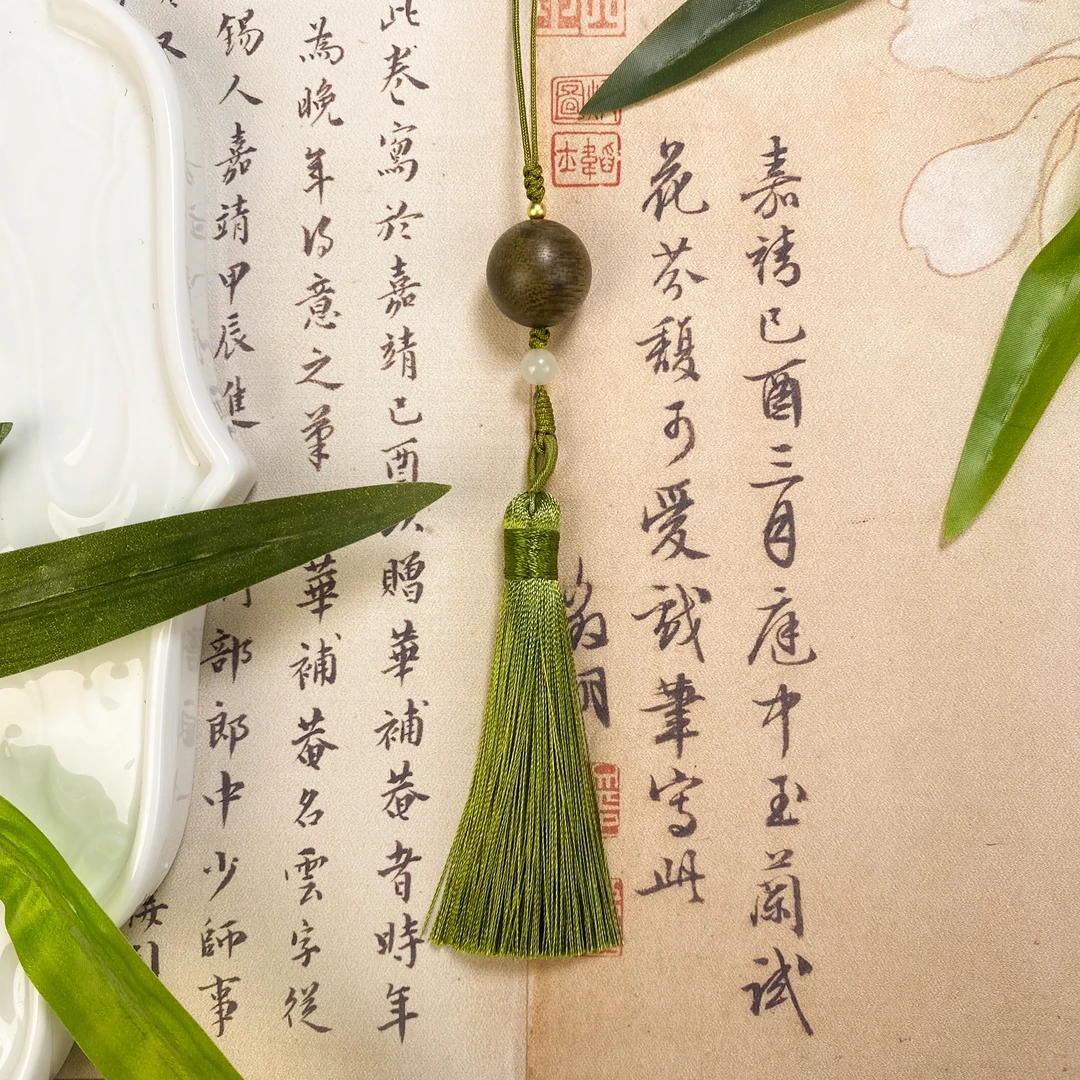 嘉靖己酉三月庭中玉蘭試
花芬馥可愛戲筆寫此
徵明
此卷寫於嘉靖己酉
贈華補菴者時年
為晚年得意之筆
華補菴名雲字從
錫人嘉靖甲辰進
部郎中少師事